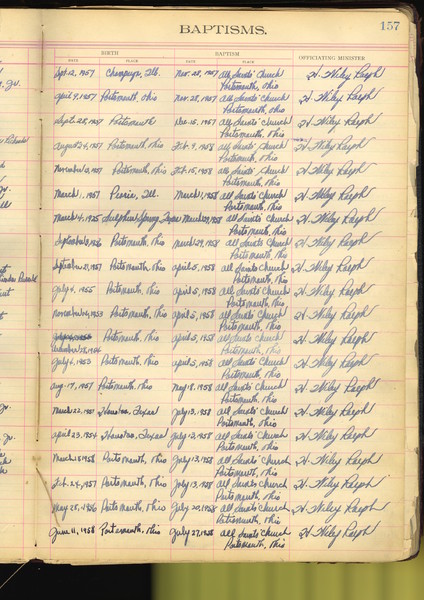 BAPTISMS. 157
BIRTH BAPTISM OFFICIATING MINISTER
DATE PLACE DATE PLACE
Sept. 12, 1957 Champaign, Ill. Nov. 28, 1957 All Saints' Church H. Wiley Ralph
Portsmouth, Ohio
April 9, 1957 Portsmouth, Ohio Nov. 28, 1957 All Saints' Church H. Wiley Ralph
Portsmouth, Ohio
Sept. 28, 1957 Portsmouth Dec. 15, 1957 All Saints' Church H. Wiley Ralph
Portsmouth, Ohio
August 29, 1957 Portsmouth, Ohio Feb. 9, 1958 All Saints' Church H. Wiley Ralph
Portsmouth, Ohio
November 1957 Portsmouth, Ohio Feb. 15, 1958 All Saints' Church H. Wiley Ralph
Portsmouth, Ohio
March 1, 1957 Peoria, Ill. March 1, 1958 All Saints' Church H. Wiley Ralph
Portsmouth, Ohio
March 4, 1925 Sulphur Springs, Texas March 29, 1958 All Saints' Church H. Wiley Ralph
Portsmouth, Ohio
September 1956 Portsmouth, Ohio March 29, 1958 All Saints' Church H. Wiley Ralph
Portsmouth, Ohio
September 21, 1957 Portsmouth, Ohio April 5, 1958 All Saints' Church H. Wiley Ralph
Portsmouth, Ohio
July 4, 1955 Portsmouth, Ohio April 5, 1958 All Saints' Church H. Wiley Ralph
Portsmouth, Ohio
November 1953 Portsmouth, Ohio April 5, 1958 All Saints' Church H. Wiley Ralph
Portsmouth, Ohio
Portsmouth, Ohio April 5, 1958 All Saints' Church H. Wiley Ralph
Portsmouth, Ohio
July 6, 1953 Portsmouth, Ohio April 5, 1958 All Saints' Church H. Wiley Ralph
Portsmouth, Ohio
Aug. 17, 1957 Portsmouth, Ohio May 18, 1958 All Saints' Church H. Wiley Ralph
Portsmouth, Ohio
March 22, 1951 Houston, Texas July 13, 1958 All Saints' Church H. Wiley Ralph
Portsmouth, Ohio
April 23, 1954 Houston, Texas July 13, 1958 All Saints' Church H. Wiley Ralph
Portsmouth, Ohio
March 1958 Portsmouth, Ohio July 13, 1958 All Saints' Church H. Wiley Ralph
Portsmouth, Ohio
Feb. 24, 1957 Portsmouth, Ohio July 13, 1958 All Saints' Church H. Wiley Ralph
Portsmouth, Ohio
May 25, 1956 Portsmouth, Ohio July 20, 1958 All Saints' Church H. Wiley Ralph
Portsmouth, Ohio
June 11, 1958 Portsmouth, Ohio July 27, 1958 All Saints' Church H. Wiley Ralph
Portsmouth, Ohio